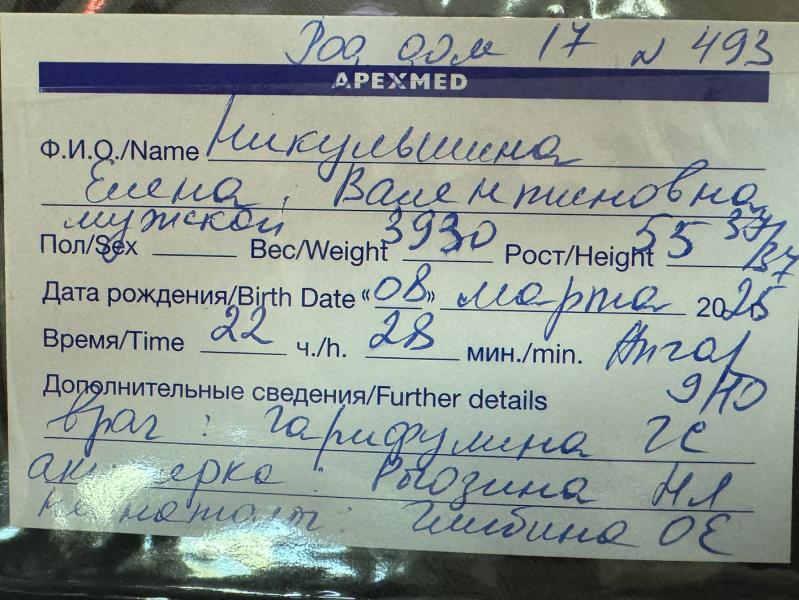 Род дом 17 № 493
APEXMED
Ф.И.О./Name Никульшина
Елена Валентиновна
мужской
Пол/Sex Вес/Weight 3930 Рост/Height 55 37/37
Дата рождения/Birth Date «08» марта 2025
Время/Time 22 ч./h. 28 мин./min. Апгар
Дополнительные сведения/Further details 9/10
врач: Гарифулина ГС
акушерка: НЛ
неонатолог: Глибина ОЕ